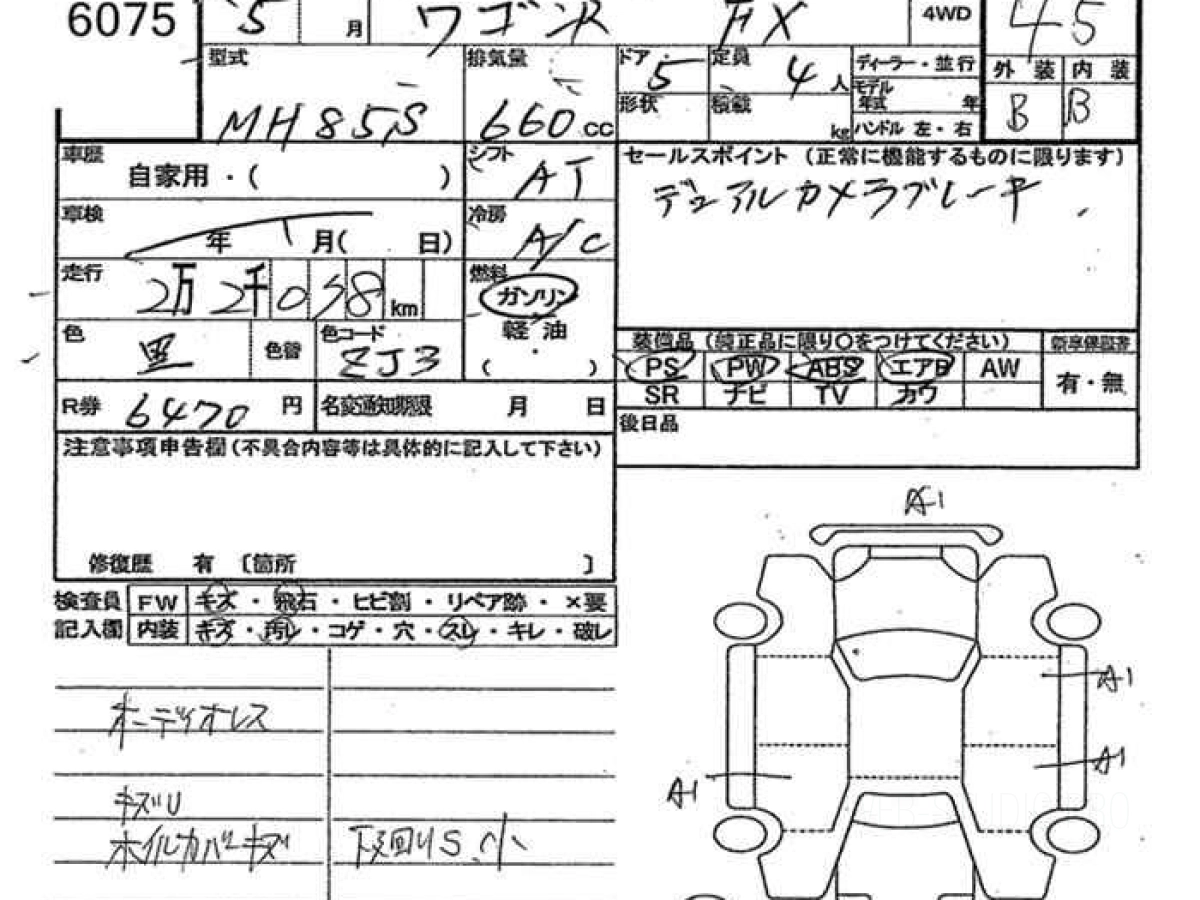 6075
5 月 ワゴンR FX 4WD 4.5
型式 MH85S
排気量 660 cc
ドア 5 定員 4 人
形状 積載 kg
ディーラー・並行
モデル年式 年
ハンドル 左・右
外装 内装
B B
車歴 自家用・( )
シフト AT
車検 年 月( 日)
冷房 A/C
走行 2万2千038km
燃料 ガソリン
軽油
( )
色 黒 色替 色コード ZJ3
R券 6470 円 名変通知期限 月 日
セールスポイント (正常に機能するものに限ります)
デュアルカメラブレーキ
装備品(純正品に限り○をつけてください) 新車保証書
PS PW ABS エアB AW 有・無
SR ナビ TV カワ
後日品
注意事項申告欄(不具合内容等は具体的に記入して下さい)
修復歴 有 〔箇所 〕
検査員 FW キズ・飛石・ヒビ割・リペア跡・×要
記入欄 内装 キズ・汚レ・コゲ・穴・スレ・キレ・破レ
オーディオレス
キズU
ホイルカバーキズ 下廻りS.小
A1
A1
A1
A1